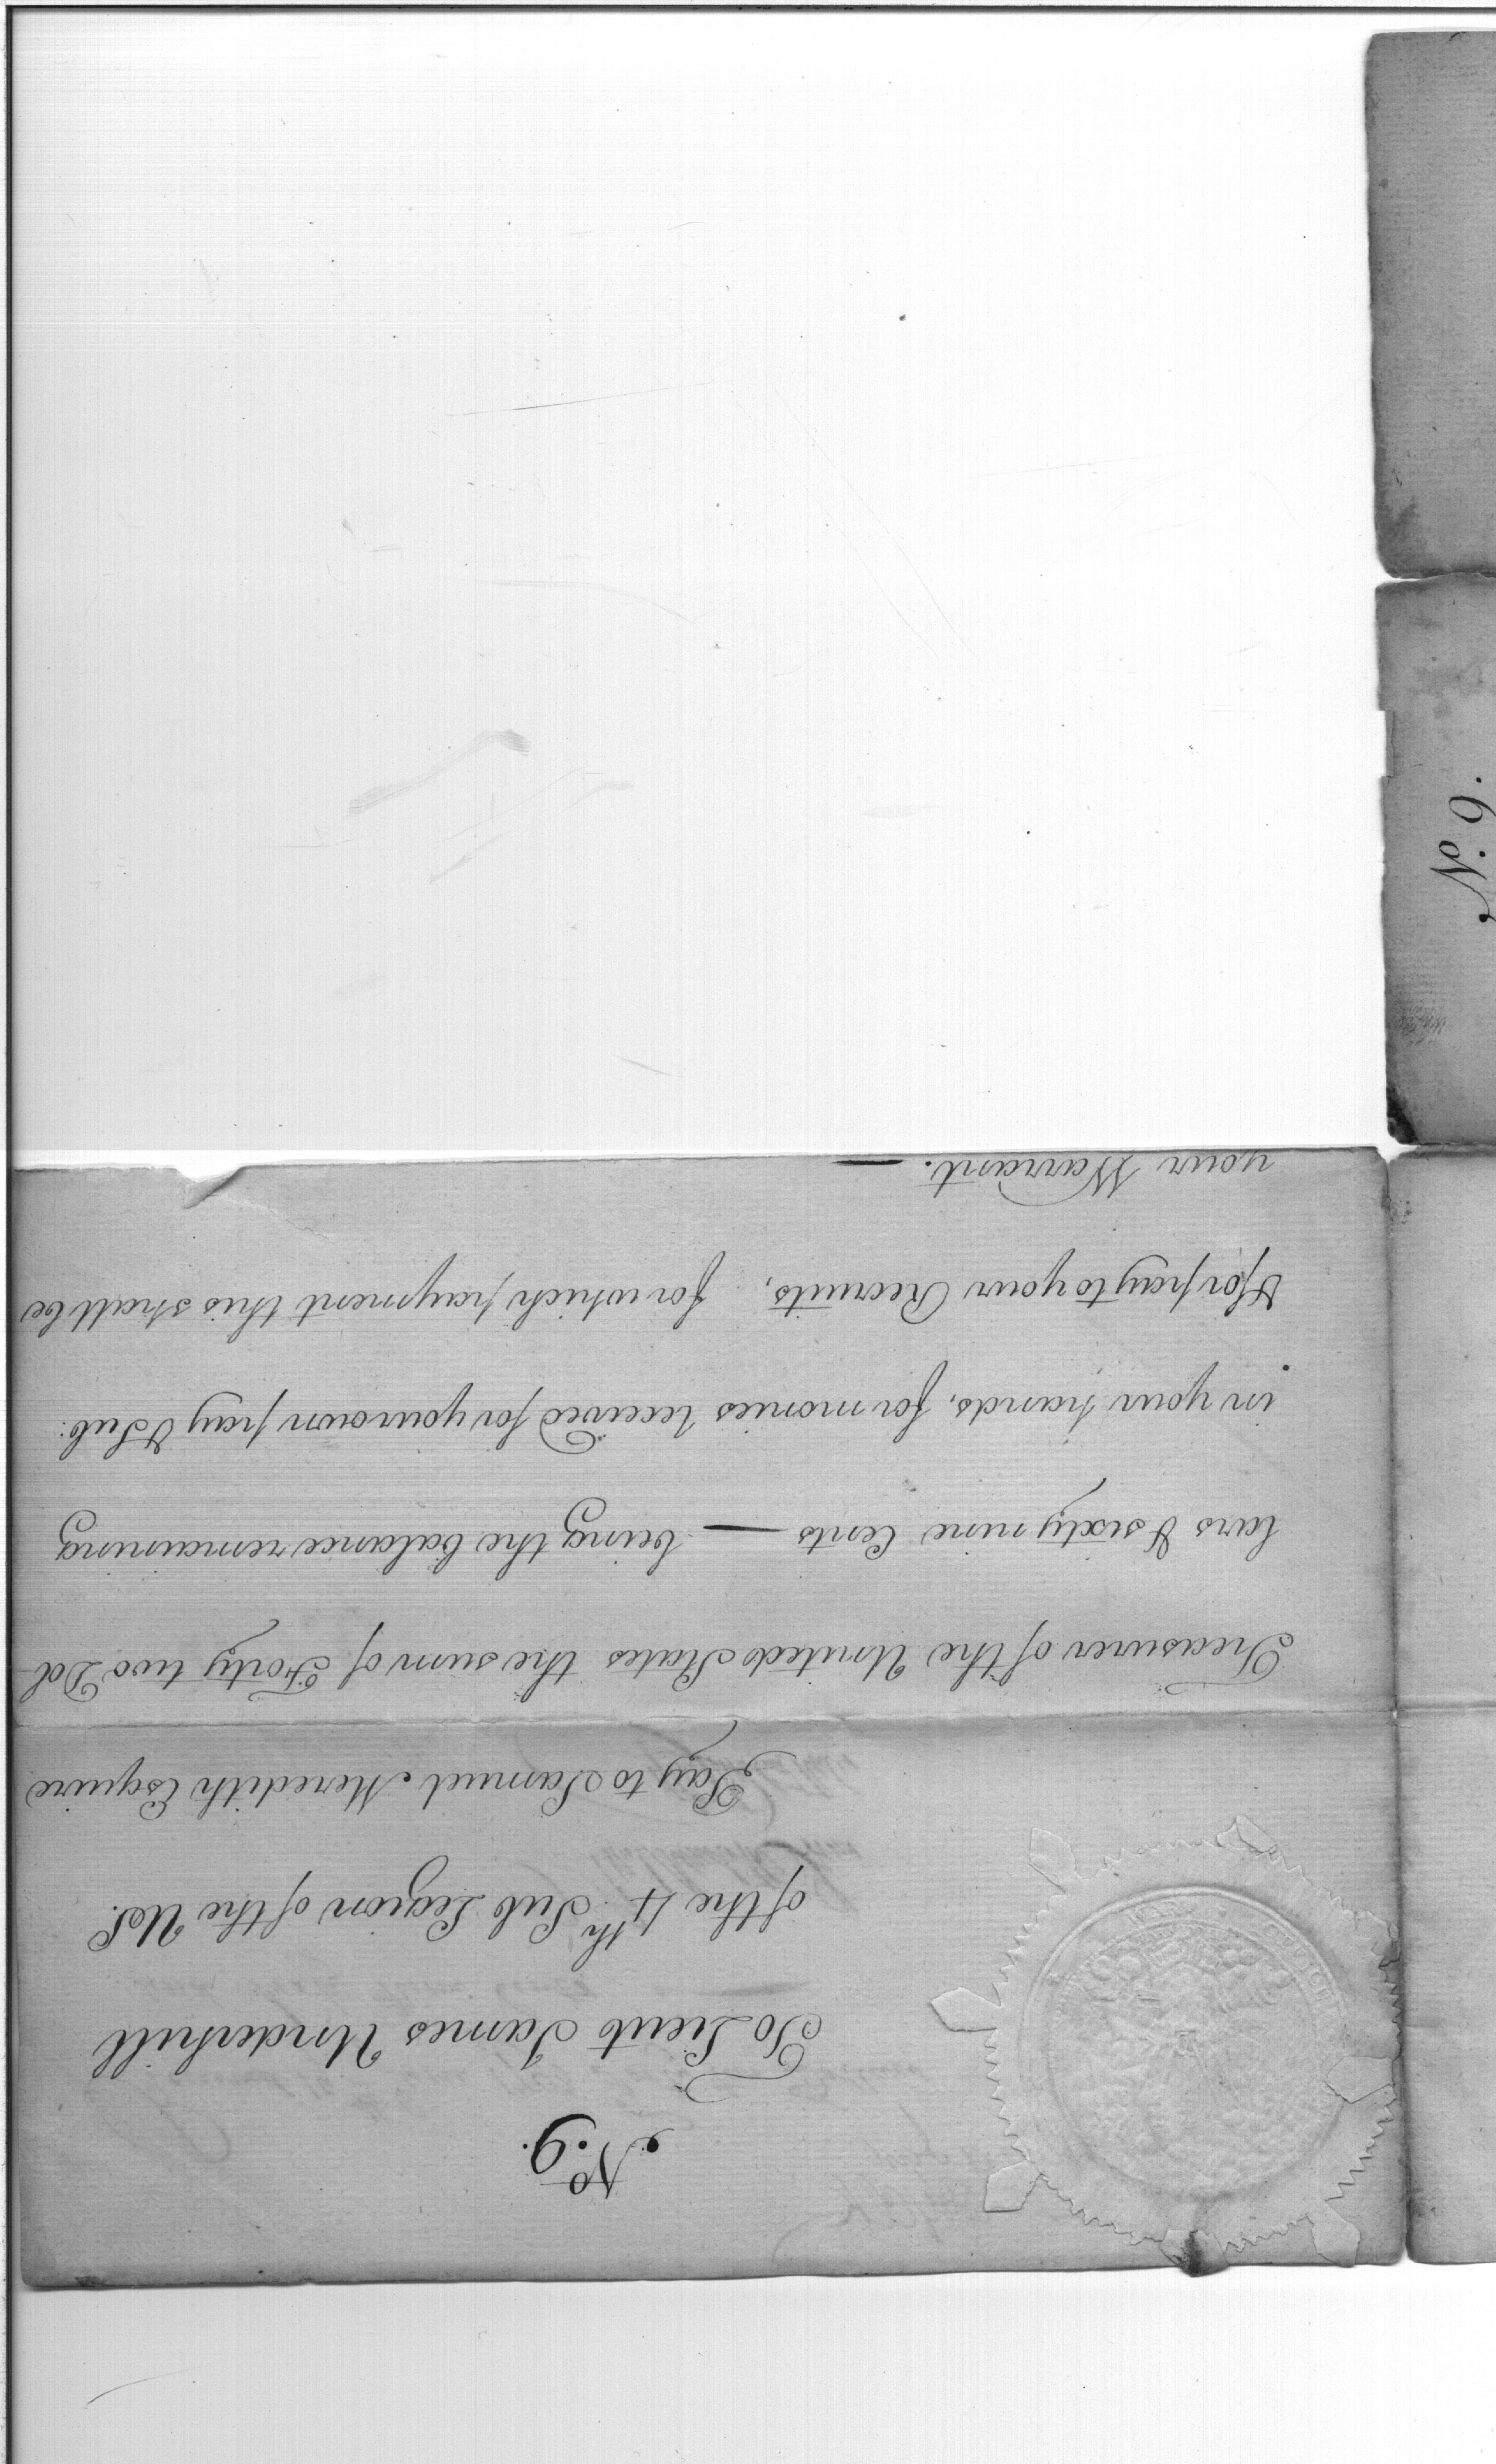 No. 9.
To Lieut James Underhill
of the 4th Sub Legion of the U.S.
Pay to Samuel Meredith Esquire
Treasurer of the United States the sum of Forty two Dol
lars & sixty nine Cents — being the balance remaining
in your hands, for monies received for your own pay & Sub:
& for pay to your Recruits, for which payment this shall be
your Warrant. —
No. 9.